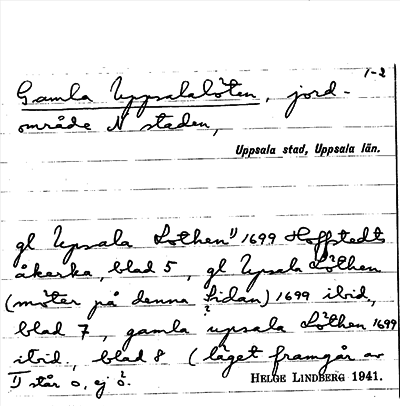 1-2
Gamla Uppsalalöten, jord-
område N staden,
Uppsala stad, Uppsala län.
gl Upsala Lothen 1) 1699 Hoffstedts
åkerka, blad 5, gl Upsala Löthen
(möter på denna sidan) 1699 ibid,
blad 7, gamla upsala Löthen 1699
ibid., blad 8 (läget framgår av
1) står o, ej ö.
HELGE LINDBERG 1941.